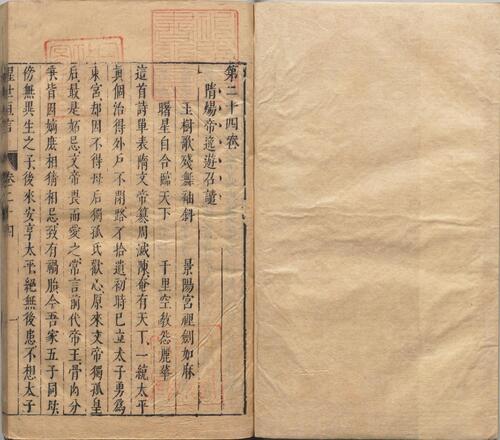 第二十四卷
隋煬帝逸遊召譴
玉樹歌殘舞袖斜　景陽宮裡劍如麻
曙星自合臨天下　千里空教怨麗華
這首詩單表隋文帝篡周滅陳奄有天下一統太平
眞個治得外戶不閉路不拾遺初時已立太子勇爲
東宮却因不得母后獨孤氏歡心原來文帝獨孤皇
后最是妬忌文帝畏而愛之常言前代帝王骨肉分
爭皆因嫡庶相猜相忌致有禍胎今吾家五子同母
傍無異生之子後來安享太平絕無後患不想太子
醒世恒言　卷二十四　一